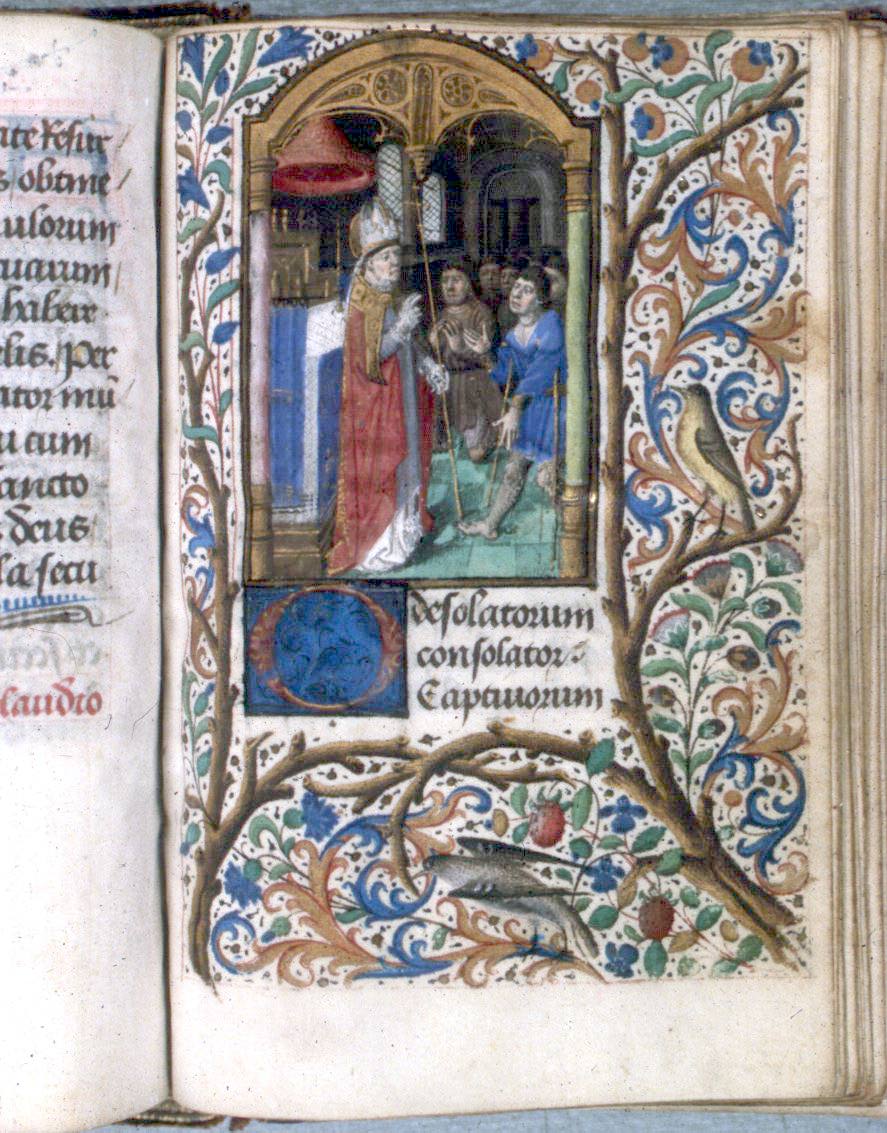 obtine
ulorum
habeir
elis. Per
ator mū
u cum
sancto
deus
la secu
laudio
O desolatorum
consolator.
Captiuorum